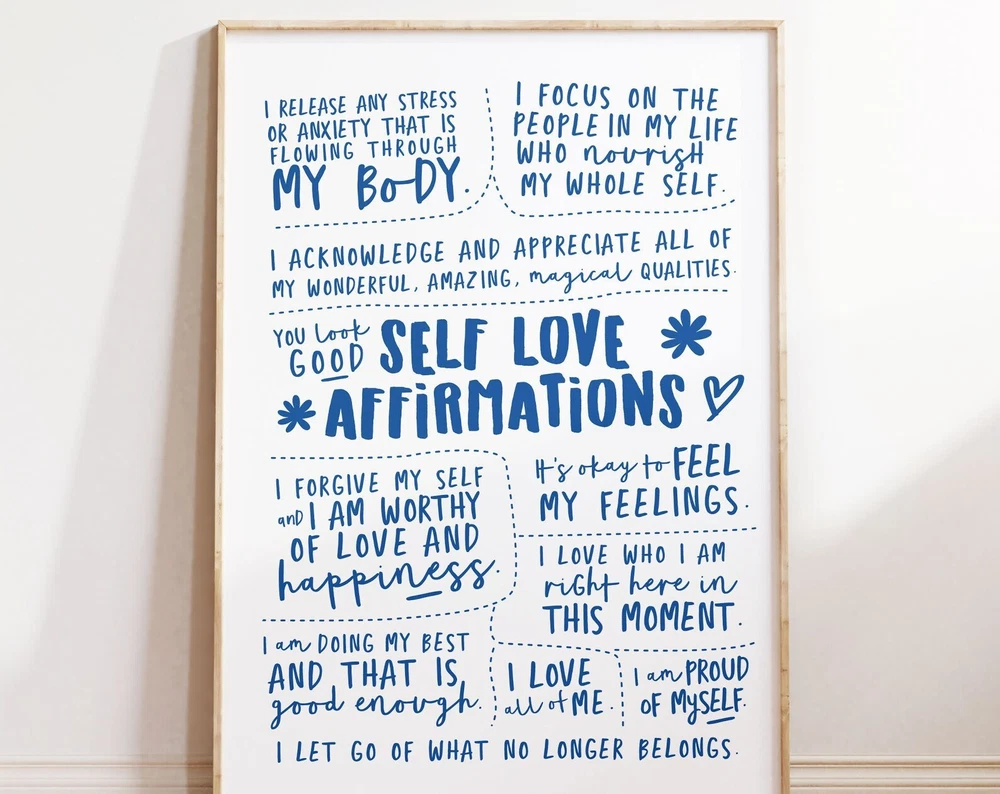 I RELEASE ANY STRESS
OR ANXIETY THAT IS
FLOWING THROUGH
MY BODY.
I FOCUS ON THE
PEOPLE IN MY LIFE
WHO nourish
MY WHOLE SELF.
I ACKNOWLEDGE AND APPRECIATE ALL OF
MY WONDERFUL, AMAZING, magical QUALITIES.
YOU look
GOOD
SELF LOVE
AFFiRMATiONS
I FORGIVE MY SELF
and I AM WORTHY
OF LOVE AND
happiness.
It's okay to FEEL
MY FEELINGS.
I LOVE WHO I AM
right here in
THIS MOMENT.
I am DOING MY BEST
AND THAT IS
good enough.
I LOVE
all of ME.
I am PROUD
OF MySELF.
I LET GO OF WHAT NO LONGER BELONGS.